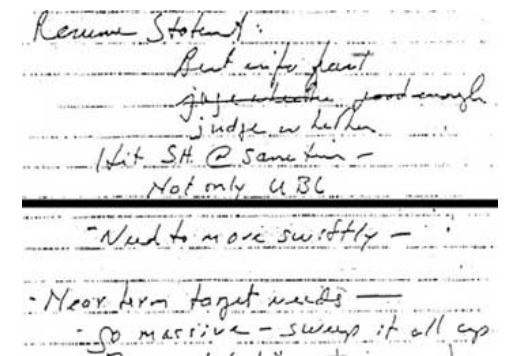 Resume Statement:
Best info fast
judge whether good enough
judge whether
Hit S.H. @ same time -
Not only UBL
- Need to move swiftly -
- Near term target needs —
- go massive - sweep it all up